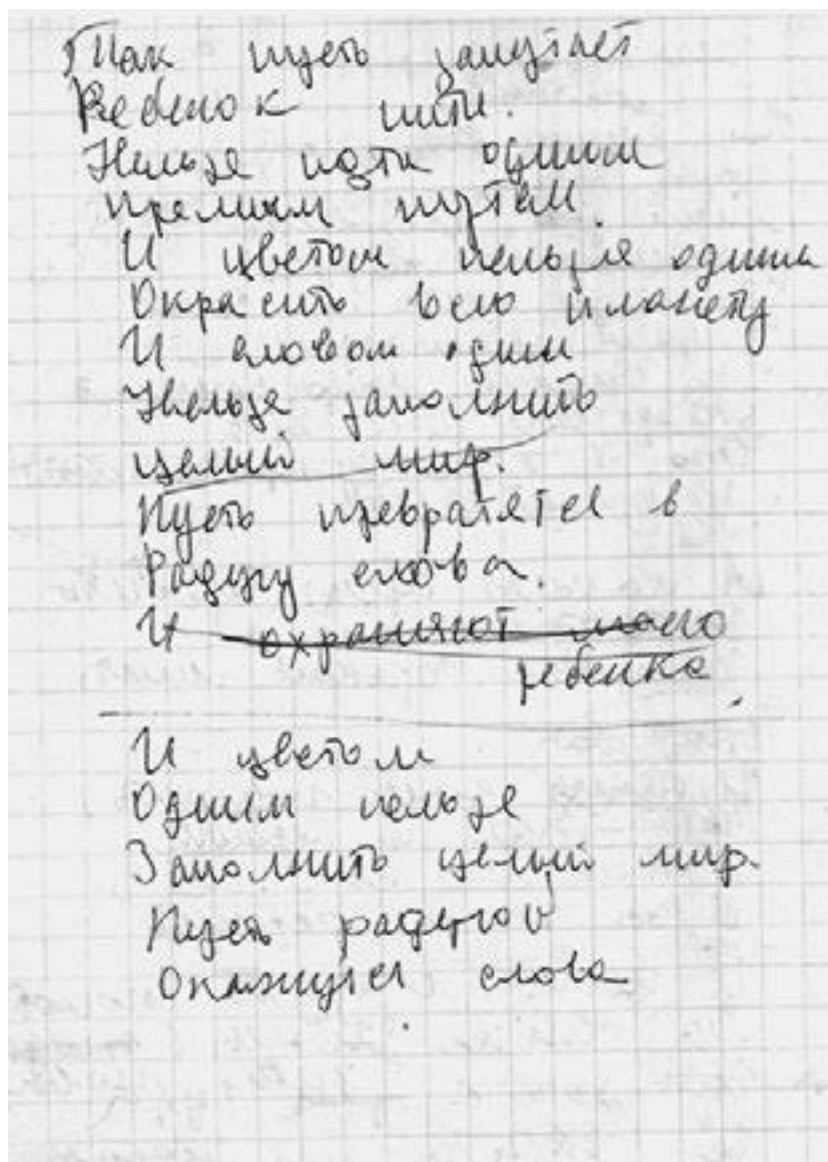 Так пусть запутает
Ребенок нити.
Нельзя идти одним
прямым путем
И цветом нельзя одним
Окрасить всю планету
И словом один
Нельзя заполнить
целый мир.
Пусть превратятся в
Радугу слова.
И охраняют моего
ребенка
И цветом
Одним нельзя
Заполнить целый мир.
Пусть радугой
Окажутся слова